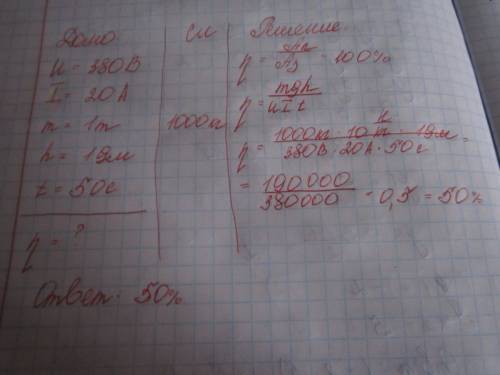 Дано
U = 380В
I = 20А
m = 1т
h = 19м
t = 50с
η = ?
Ответ: 50%
СИ
1000кг
Решение
η = Aп/Aз = 100%
η = mgh/UIt
η = 1000кг · 10 Н/кг · 19м / 380В · 20А · 50с =
= 190000/380000 = 0,5 = 50%